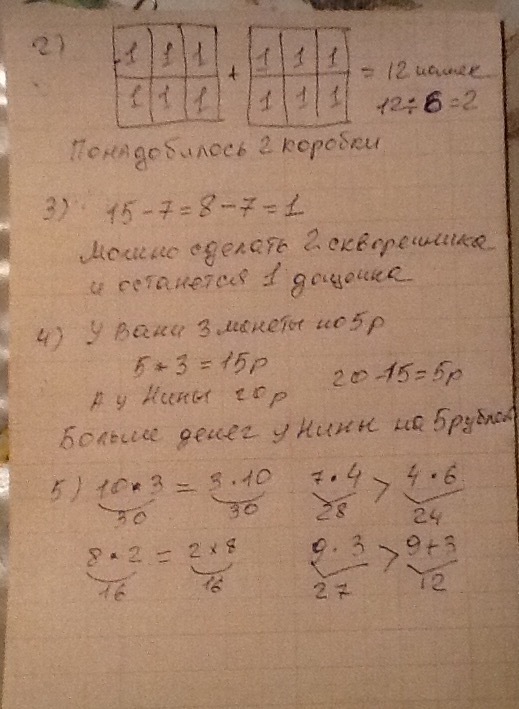 2) 1 1 1 + 1 1 1 = 12 чашек
1 1 1 1 1 1 12 ÷ 6 = 2
Понадобилось 2 коробки
3) 15 - 7 = 8 - 7 = 1
Можно сделать 2 скворешника
и останется 1 дощочка
4) У Вани 3 монеты по 5р
5 * 3 = 15р
А у Нины 20р 20 - 15 = 5р
Больше денег у Нины на 5 рублей
5) 10 * 3 = 3 · 10 7 * 4 > 4 * 6
30 30 28 24
8 * 2 = 2 × 8 9 · 3 > 9 + 3
16 16 27 12